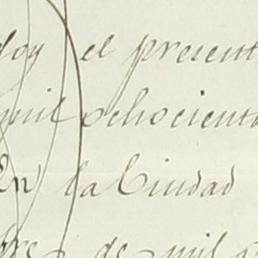 doy el present
mil ochociento
En la Ciudad
bre de mil